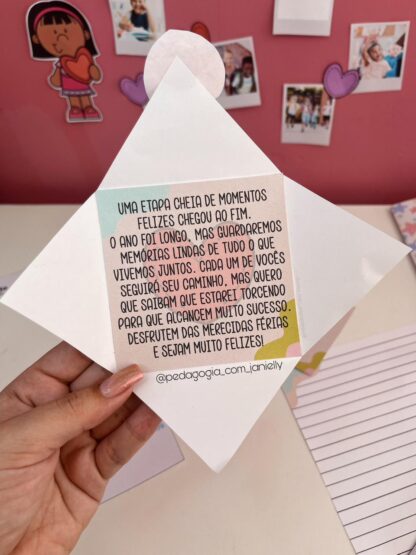 UMA ETAPA CHEIA DE MOMENTOS
FELIZES CHEGOU AO FIM.
O ANO FOI LONGO, MAS GUARDAREMOS
MEMÓRIAS LINDAS DE TUDO O QUE
VIVEMOS JUNTOS. CADA UM DE VOCÊS
SEGUIRÁ SEU CAMINHO, MAS QUERO
QUE SAIBAM QUE ESTAREI TORCENDO
PARA QUE ALCANCEM MUITO SUCESSO.
DESFRUTEM DAS MERECIDAS FÉRIAS
E SEJAM MUITO FELIZES!
@pedagogia_com_janielly